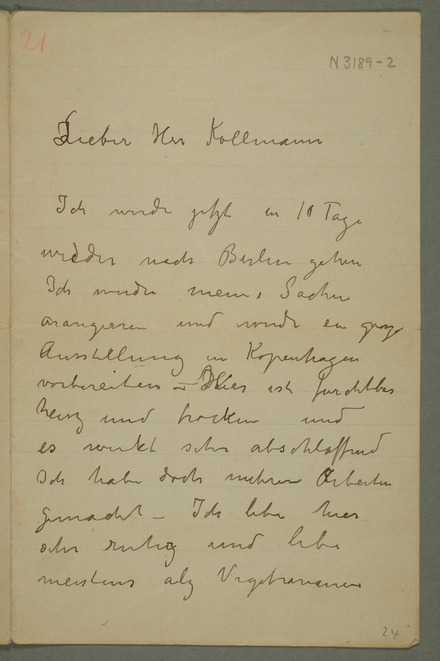 21
N 3189-2
Lieber Herr Kollmann
Ich werde jetzt in 10 Tage
wieder nach Berlin gehen
Ich werde meine Sachen
arangieren und werde ein grosse
Ausstellung in Kopenhagen
vorbereiten – Hier ist furchtbar
heisz und trocken und
es wirkt sehr abschlaffend
Ich habe doch mehrere Arbeiten
gemacht – Ich lebe hier
sehr ruhig und lebe
meistens als Vegetarianer
24